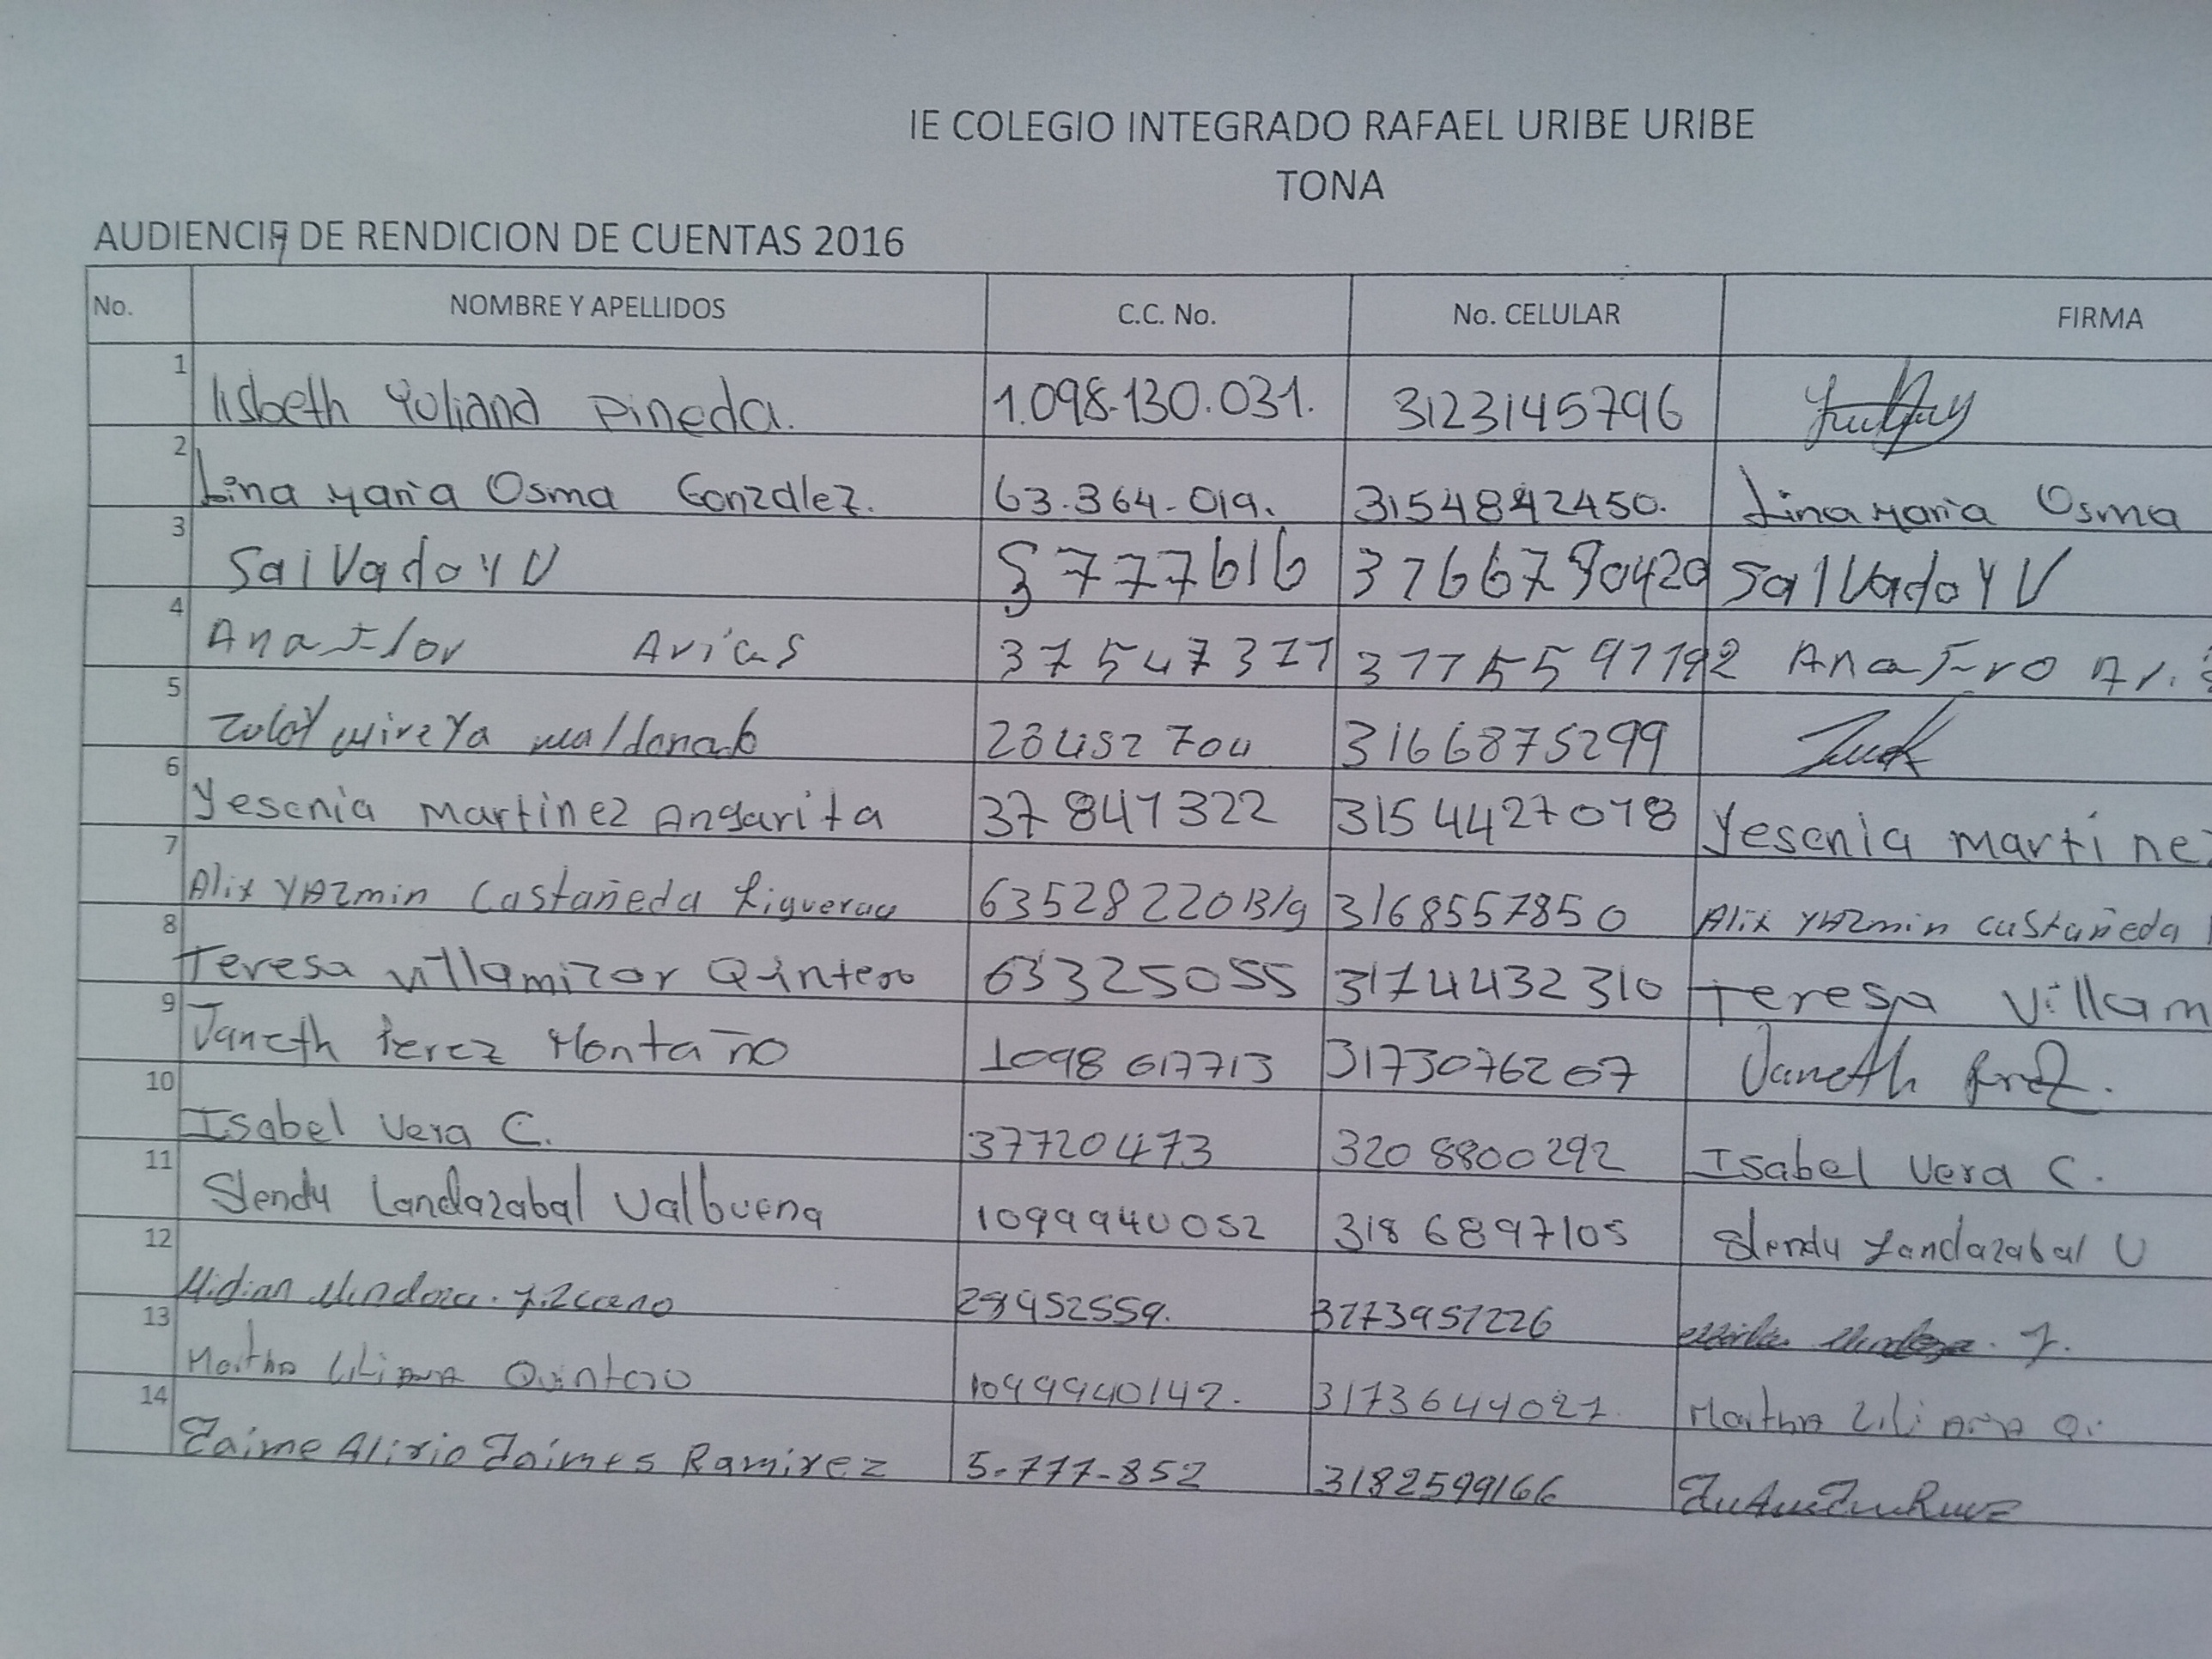 IE COLEGIO INTEGRADO RAFAEL URIBE URIBE
TONA
AUDIENCIA DE RENDICION DE CUENTAS 2016
No. NOMBRE Y APELLIDOS C.C. No. No. CELULAR FIRMA
1 lisbeth Yuliana Pineda. 1.098.130.031. 3123145796
2 Lina Maria Osma Gonzalez. 63.364-019. 3154842450. Lina Maria Osma
3 SalVadoY V 5777616 3166790420 SalVadoY V
4 Ana Flor Arias 37547311 3115591192 Ana Fro
5 Zulay Mireya Maldonado 28452704 3166875299
6 Yesenia Martinez Angarita 37 841322 315 4427018 Yesenia martine
7 Alix YAZmin Castañeda Figueroa 63528220 B/g 3168557850 Alix YAZmin castañeda
8 Teresa Villamizar Qintero 63325055 3174432310 Teresa Villam
9 Janeth Perez Montaño 1098 617713 3173076267 Janeth Perez.
10 Isabel Vera C. 37720473 320 8800292 Isabel Vera C.
11 Slendy Landazabal Valbuena 1099940052 318 6897105 Slendy Landazabal V
12 Midian Mendoza. 28452559. 3173951226
13 Martha LiliANA Quintero 1099940142. 3173644021. Martha LiliANA Q.
14 Jaime Alirio Jaimes Ramirez 5-777-852 3182599166